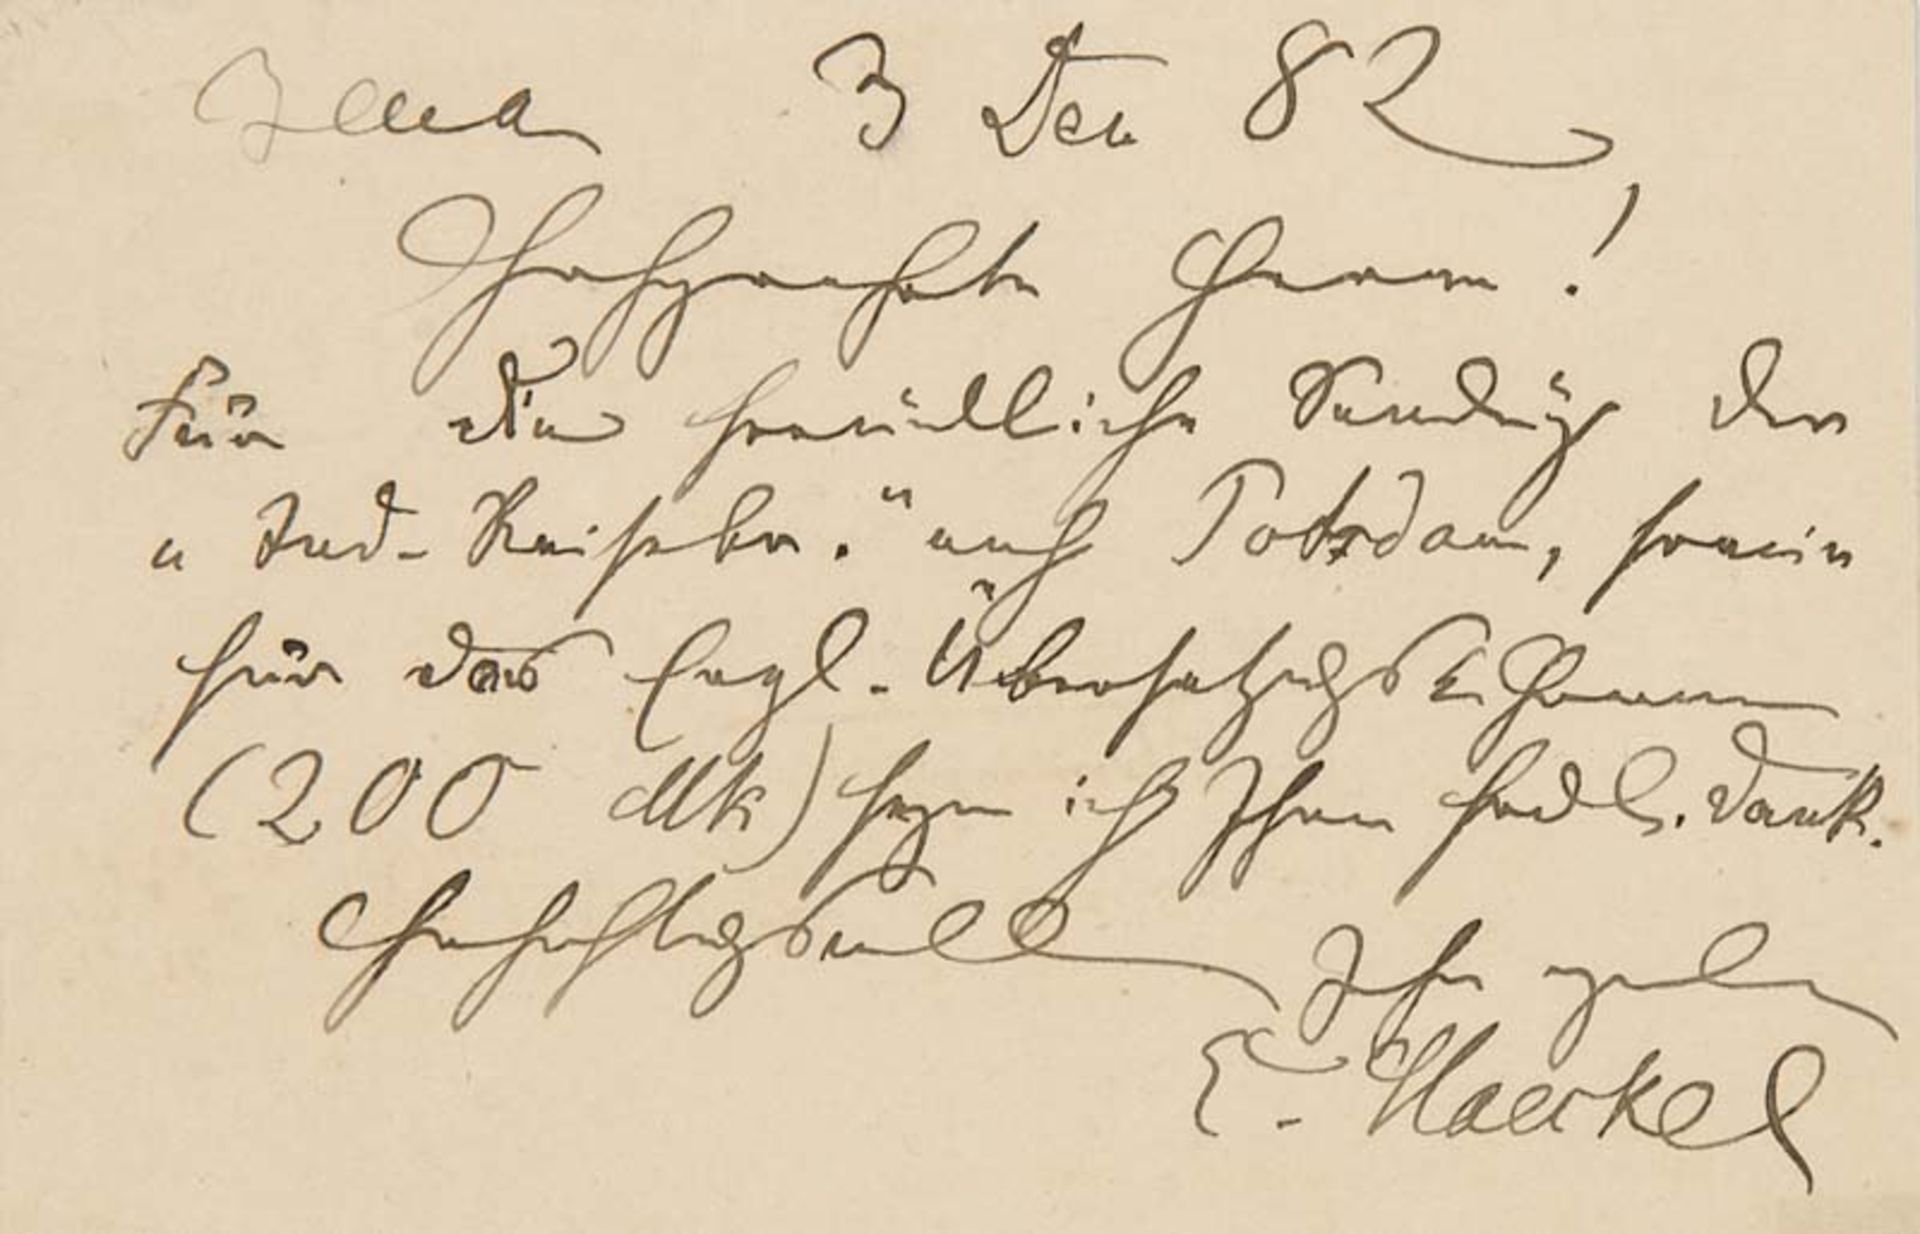 Jena 3 Dec 82
Hochgeehrter Herr!
Für die freundliche Sendung der
„Ind. Reisebr." nach Potsdam, sowie
für das Engl. Übersetzungs
(200 Mk) sage ich Ihnen herzl. Dank.
Hochachtungsvoll
Ihr ergeb.
E. Haeckel